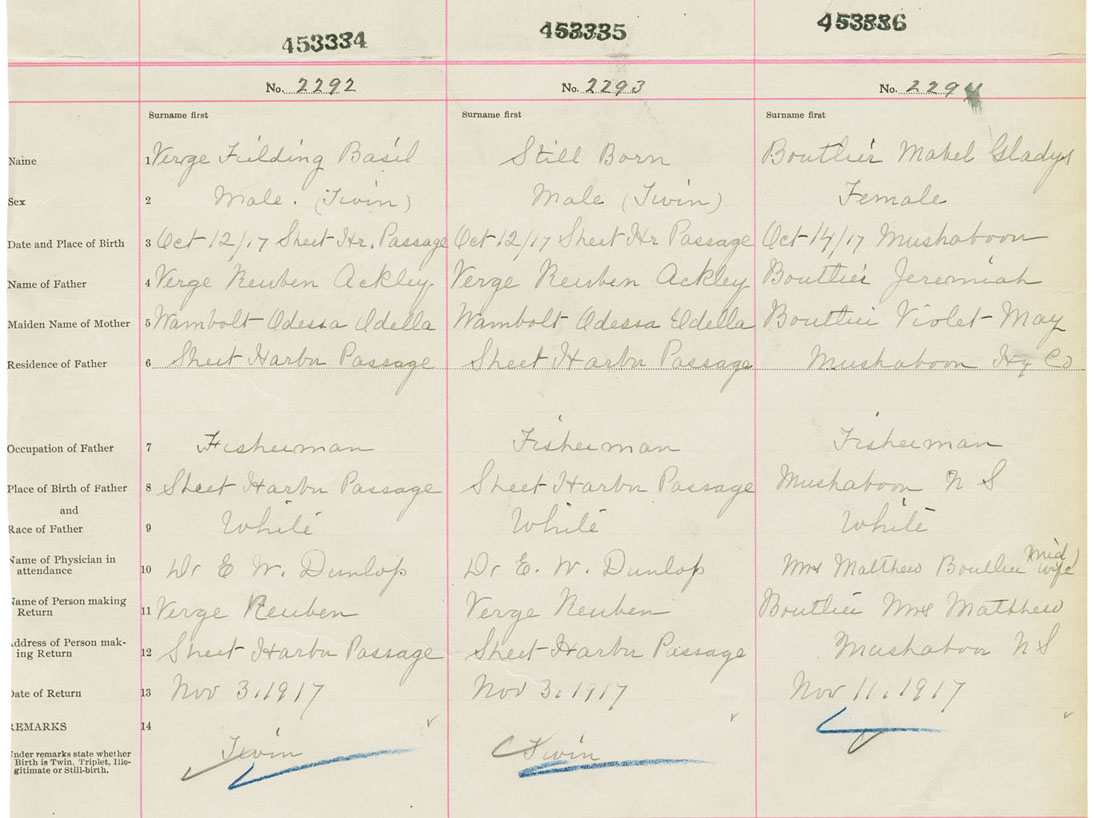 453334 453335 453336
No. 2292 No. 2293 No. 2294
Surname first Surname first Surname first
Name 1 Verge Feilding Basil Still Born Boutlier Mabel Gladys
Sex 2 Male. (Twin) Male (Twin) Female
Date and Place of Birth 3 Oct 12/17 Sheet Hr. Passage Oct 12/17 Sheet Hr Passage Oct 14/17 Mushaboon
Name of Father 4 Verge Reuben Ackley. Verge Reuben Ackley Boutlier Jeremiah
Maiden Name of Mother 5 Wambolt Odessa Odella Wambolt Odessa Odella Boutlier Violet May
Residence of Father 6 Sheet Harbr Passage Sheet Harbr Passage Mushaboon Hfx Co
Occupation of Father 7 Fisherman Fisherman Fisherman
Place of Birth of Father 8 Sheet Harbr Passage Sheet Harbr Passage Mushaboon N S
and
Race of Father 9 White White White
Name of Physician in
attendance 10 Dr E W. Dunlop Dr E. W. Dunlop Mrs Matthew Boutlier midwife)
Name of Person making
Return 11 Verge Reuben Verge Reuben Boutlier Mrs Matthew
Address of Person mak-
ing Return 12 Sheet Harbr Passage Sheet Harbr Passage Mushaboon N S
Date of Return 13 Nov 3, 1917 Nov 3, 1917 Nov 11, 1917
REMARKS 14
Under remarks state whether Twin Twin
Birth is Twin, Triplet, Ille-
gitimate or Still-birth.